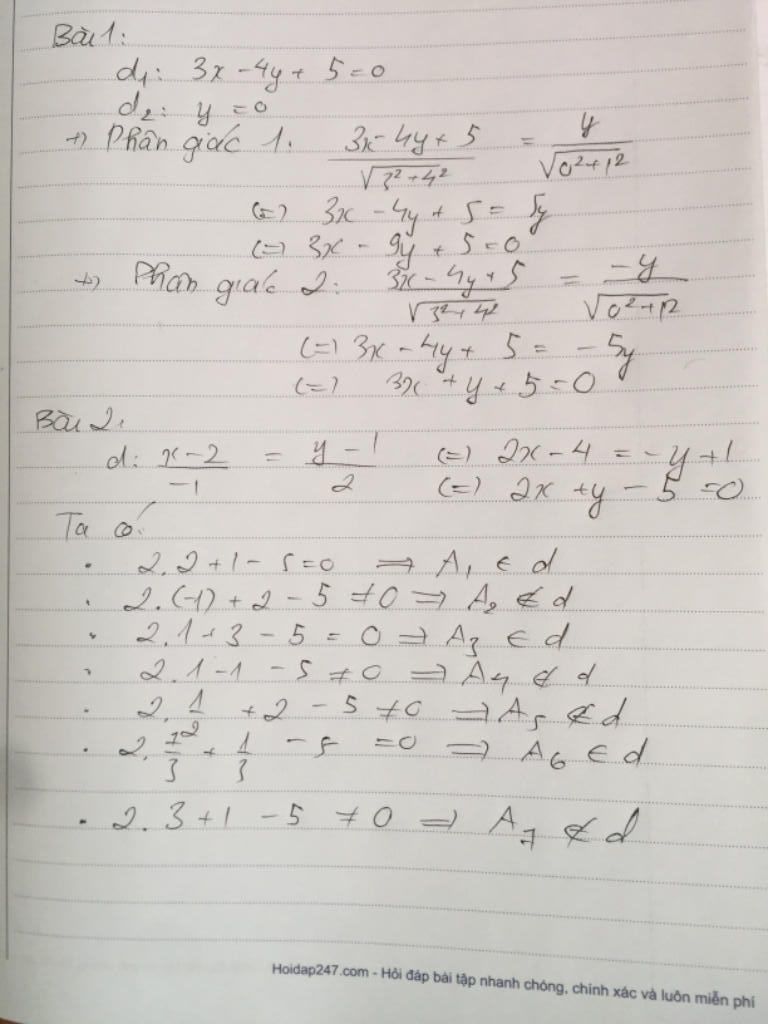 Bài 1:
d₁: 3x - 4y + 5 = 0
d₂: y = 0
+) Phân giác 1: (3x - 4y + 5)/√(3² + 4²) = y/√(0² + 1²)
(=) 3x - 4y + 5 = 5y
(=) 3x - 9y + 5 = 0
+) Phân giác 2: (3x - 4y + 5)/√(3² + 4²) = -y/√(0² + 1²)
(=) 3x - 4y + 5 = -5y
(=) 3x + y + 5 = 0
Bài 2:
d: (x - 2)/(-1) = (y - 1)/2 (=) 2x - 4 = -y + 1
(=) 2x + y - 5 = 0
Ta có:
• 2.2 + 1 - 5 = 0 => A₁ ∈ d
• 2.(-1) + 2 - 5 ≠ 0 => A₂ ∉ d
• 2.1 + 3 - 5 = 0 => A₃ ∈ d
• 2.1 - 1 - 5 ≠ 0 => A₄ ∉ d
• 2.1/2 + 2 - 5 ≠ 0 => A₅ ∉ d
• 2.7/3 + 1/3 - 5 = 0 => A₆ ∈ d
• 2.3 + 1 - 5 ≠ 0 => A₇ ∉ d
Hoidap247.com - Hỏi đáp bài tập nhanh chóng, chính xác và luôn miễn phí